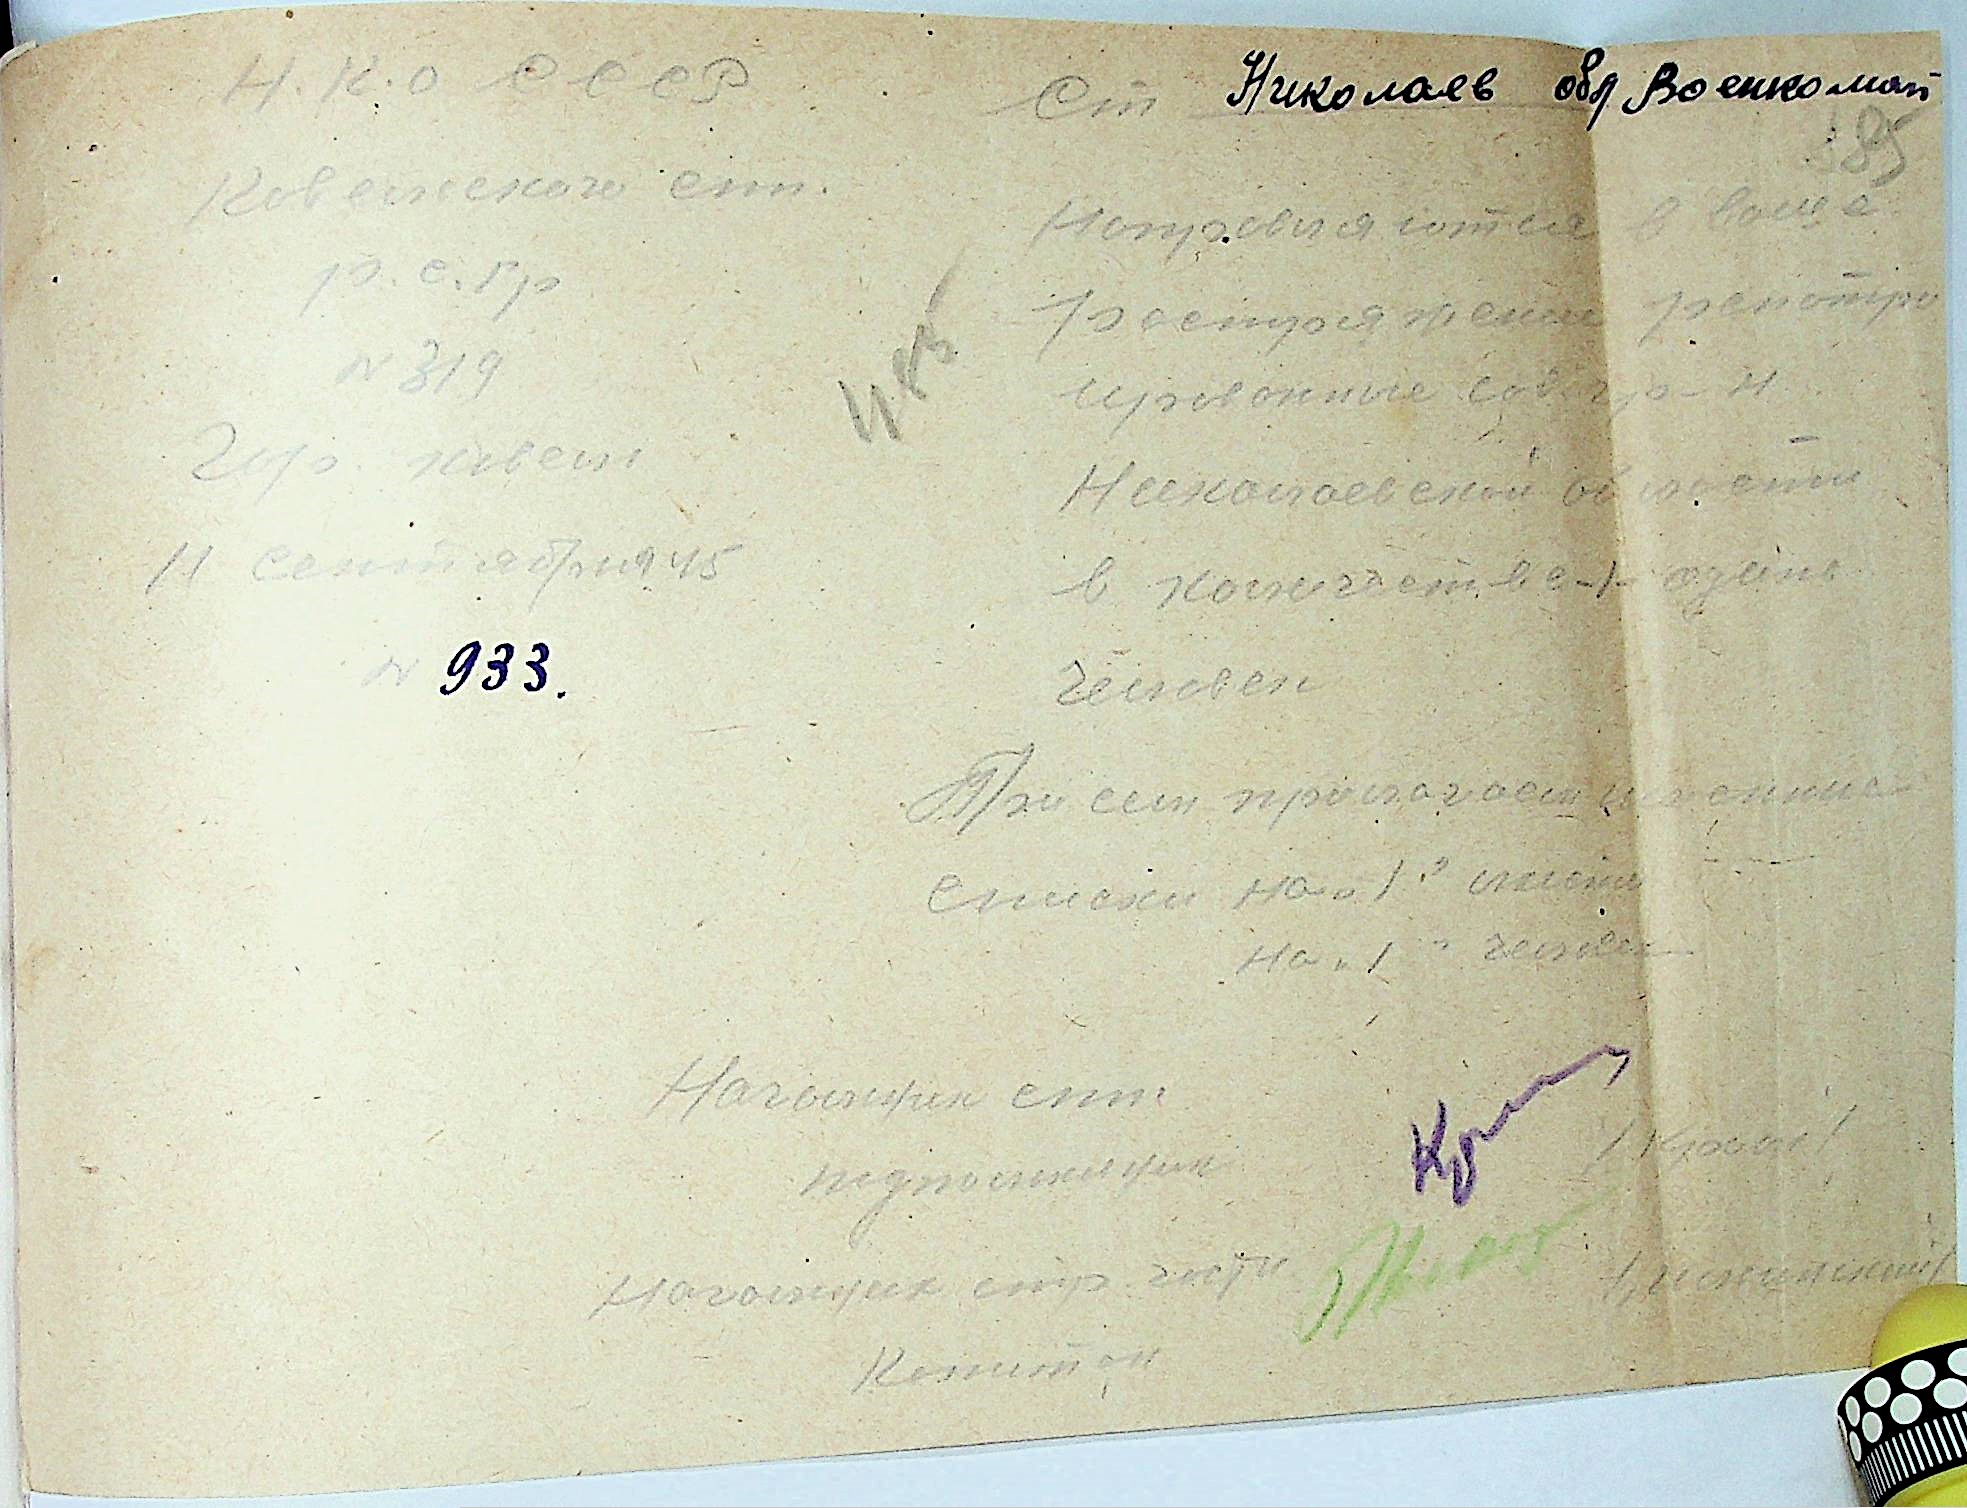 Н.К.О СССР
Ковельского спп.
р.с.гр
N 319
Гор. Ковель
11 сентября 45
N 933.
Ст Николаев обл Военкомат
185
Направляются в ваше
распоряжение репатри
ированные сов. гр-н
Николаевской области
в количестве -1- один
человек
При сем прилагаем именные
списки на "1" листе
на "1" человек
Начальник спп
подполковник
Начальник стр. части
Капитан